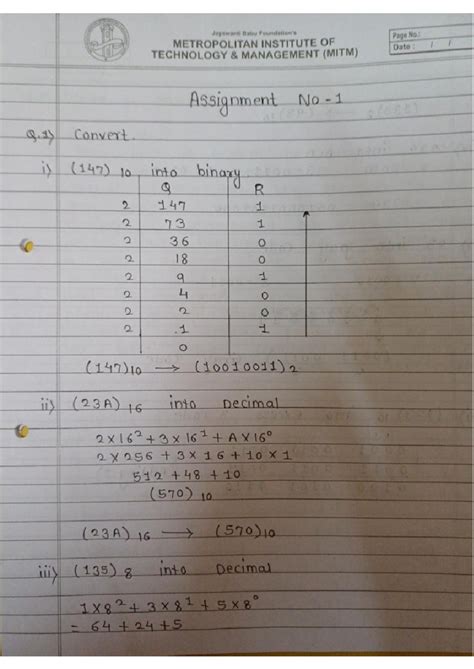 Jagaswami Babu Foundation's
METROPOLITAN INSTITUTE OF
TECHNOLOGY & MANAGEMENT (MITM)
Page No.:
Date : / /
Assignment No-1
Q.1) Convert.
i) (147)10 into binary
Q R
2 147 1
2 73 1
2 36 0
2 18 0
2 9 1
2 4 0
2 2 0
2 1 1
0
(147)10 → (10010011)2
ii) (23A)16 into Decimal
2×16²+3×16¹+A×16⁰
2×256+3×16+10×1
512+48+10
(570)10
(23A)16 → (570)10
iii) (135)8 into Decimal
1×8²+3×8¹+5×8⁰
= 64+24+5